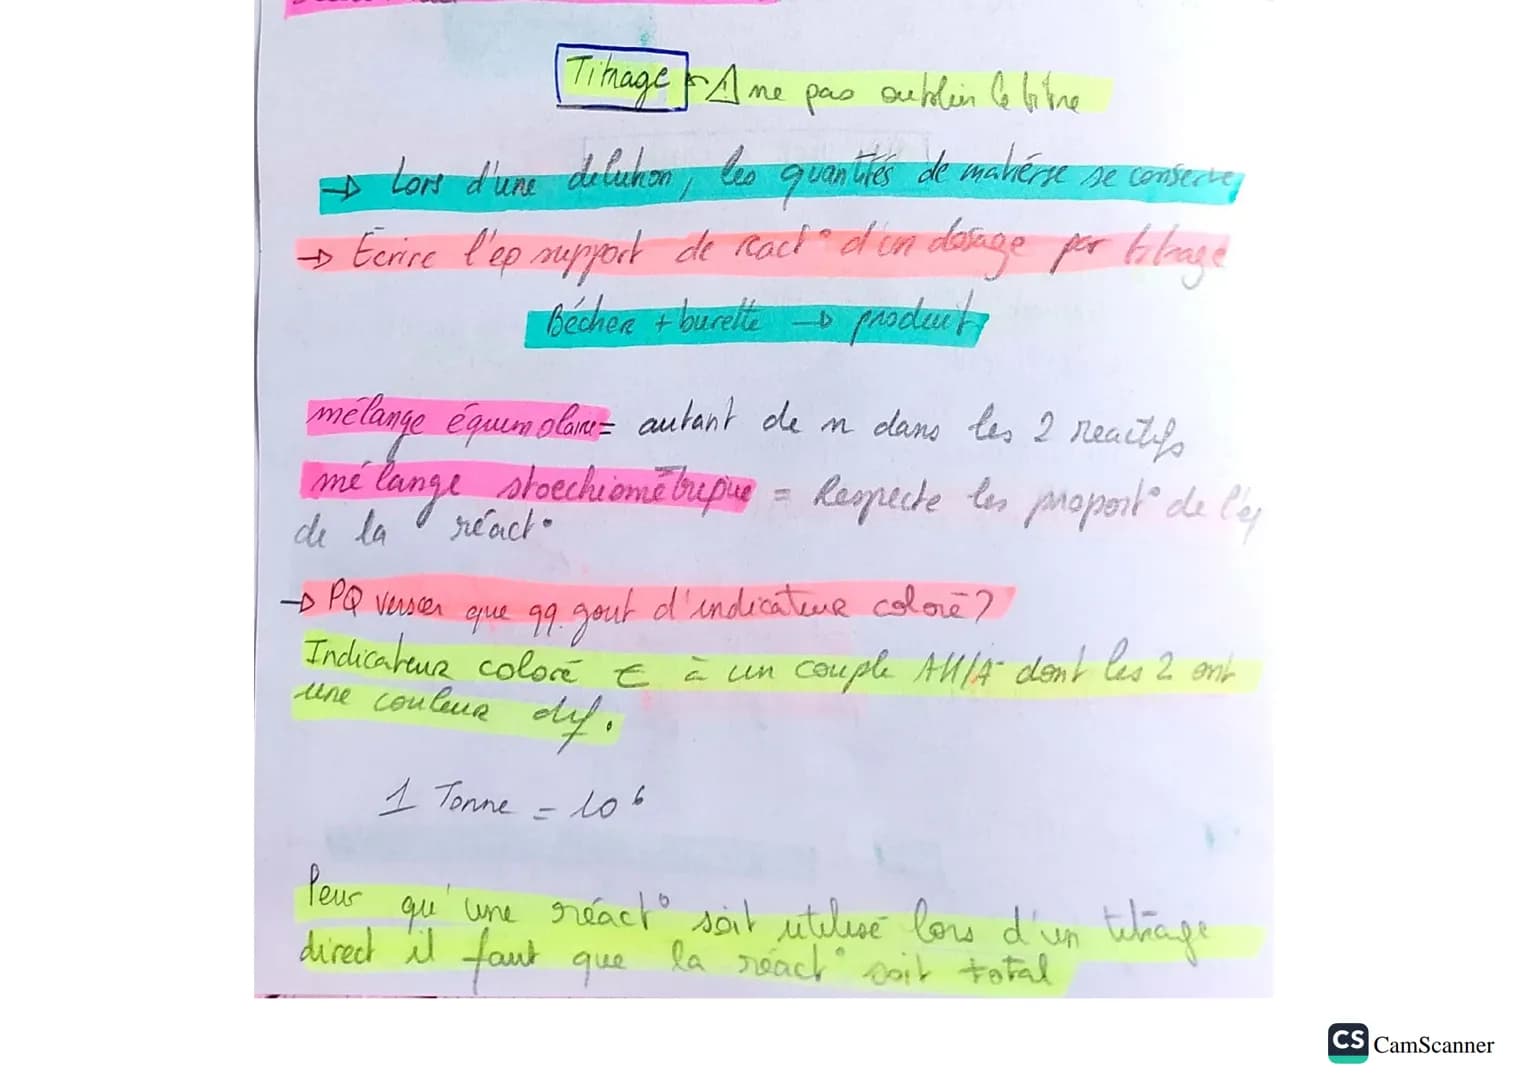 Titrage ⚠ ne pas oublier le titre
→ Lors d'une dilution, les quantités de matière se conserve,
→ Ecrire l'eq support de react° d'un dosage par titrage
Bécher + burette → produit
mélange équimolaire = autant de n dans les 2 reactifs
mélange stoechiométrique = Respecte les proport° de l'éq
de la réact°
→ PQ verser que qq. gout d'indicateur coloré ?
Indicateur coloré ∈ à un couple AH/A⁻ dont les 2 ont
une couleur dif.
1 Tonne = 10⁶
Pour qu'une réact° soit utilisé lors d'un titrage
direct il faut que la réact° soit total
CS CamScanner